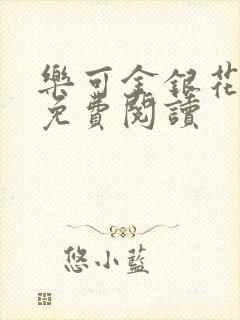 樂可金銀花
免費閱讀
悠小藍